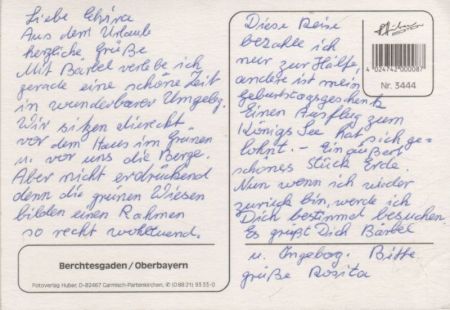 Liebe Elvira
Aus dem Urlaube
herzliche Grüße
Mit Bärbel verlebe ich
gerade eine schöne Zeit
in wunderbarer Umgebg.
Wir sitzen direckt
vor dem Haus im Grünen
u. vor uns die Berge.
Aber nicht erdrückend
denn die grünen Wiesen
bilden einen Rahmen
so recht wohltuend.
Berchtesgaden/Oberbayern
Fotoverlag Huber, D-82467 Garmisch-Partenkirchen, ✆ (0 88 21) 93 33-0
Diese Reise
bezahle ich
nur zur Hälfte,
andere ist mein
Geburtstagsgeschenk
Einen Ausflug zum
Königs See hat sich ge-
lohnt. - Ein äußerst
schönes Stück Erde.
Nun wenn ich wieder
zurück bin, werde ich
Dich bestimmt besuchen.
Es grüßt Dich Bärbel
u. Ingeborg. Bitte
grüße Rosita
4 024742 000087
Nr. 3444